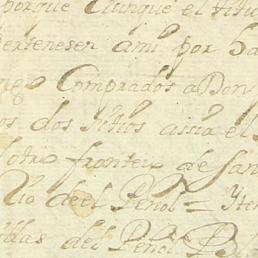 porque Aunque el titu
pertenesen ami por ha
Comprados a Don
os dos sitios assia el
otro frontero de San
Rio de el Peñol = Yte
del Peñol